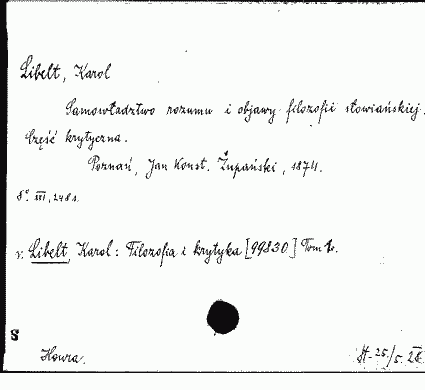 Libelt, Karol
Samowładztwo rozumu i objawy filozofii słowiańskiej.
Część krytyczna.
Poznań, Jan Konst. Żupański, 1874.
8° III, 248 s.
v. Libelt, Karol: Filozofia i krytyka [99830] Tom 1.
S
H-25/5.28